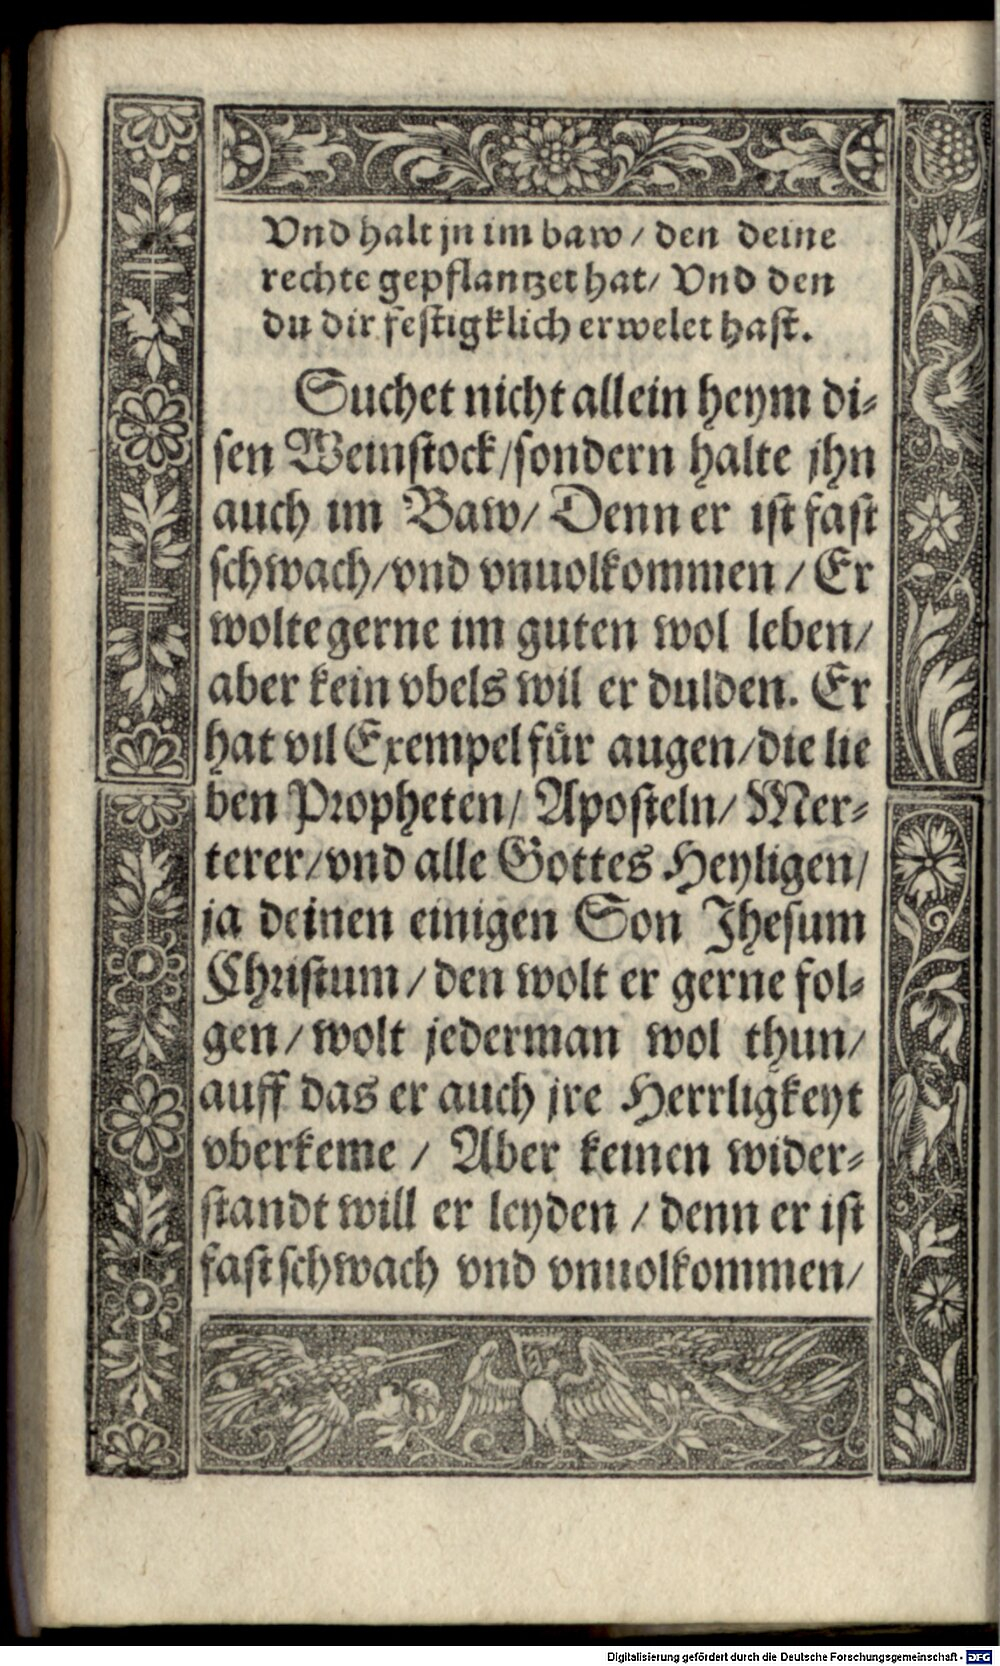 Vnd halt jn im baw / den deine
rechte gepflantzet hat / Vnd den
du dir festigklich erwelet hast.
Suchet nicht allein heym di⸗
sen Weinstock / sondern halte jhn
auch im Baw / Denn er ist fast
schwach / vnd vnuolkommen / Er
wolte gerne im guten wol leben /
aber kein vbels wil er dulden. Er
hat vil Exempel für augen / die lie
ben Propheten / Aposteln / Mer⸗
terer / vnd alle Gottes Heyligen /
ja deinen einigen Son Jhesum
Christum / den wolt er gerne fol⸗
gen / wolt jederman wol thun /
auff das er auch jre Herrligkeyt
vberkeme / Aber keinen wider⸗
standt will er leyden / denn er ist
fast schwach vnd vnuolkommen /
Digitalisierung gefördert durch die Deutsche Forschungsgemeinschaft - DFG